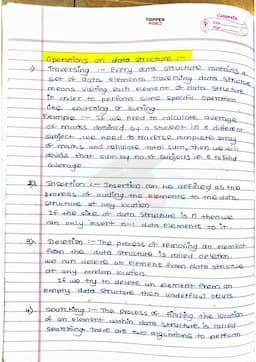 TOPPER
WORLD
classmate
Date
Page
Operations on data structure :-
1) Traversing :- Every data structure contains a
set of data elements. Traversing data structure
means visiting each element of data structure
in order to perform some specific operation
like searching or sorting.
Example :- If we need to calculate average
of marks obtained by a student in 6 different
subject, we need to traverse complete array
of marks and calculate total sum, then we will
devide that sum by no. of subjects ie 6 to find
average.
2) Insertion :- Insertion can be defined as the
process of adding the elements to the data
structure at any location.
If the size of data structure is n then we
can only insert n-1 data elements to it.
3) Deletion :- The process of removing an element
from the data structure is called deletion.
we can delete an element from data structure
at any random location.
If we try to delete an element from an
empty data structure then underflow occurs
4) Searching :- The process of finding the location
of an element within data structure is called
searching. There are two algorithms to perform